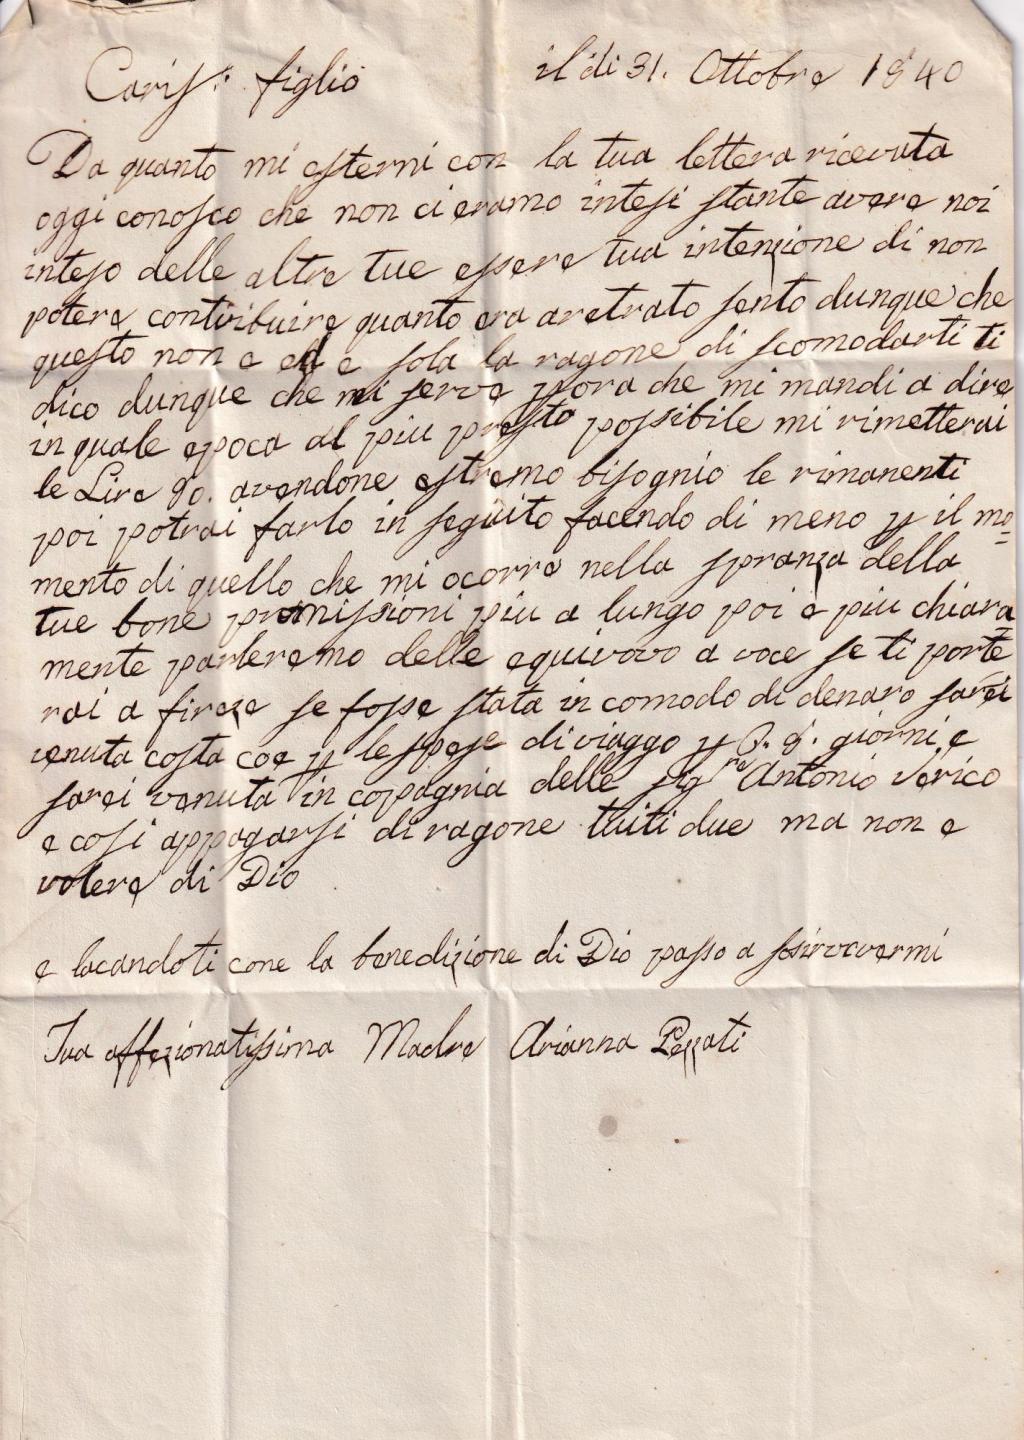 Caris: figlio il di 31. Ottobre 1840
Da quanto mi esterni con la tua lettera ricevuta
oggi conosco che non ci eramo intesi stante avere noi
inteso delle altre tue essere tua intenzione di non
potere contribuire quanto era aretrato sento dunque che
questo non e ed e sola la ragone di scomodarti ti
dico dunque che mi serve p ora che mi mandi a dire
in quale epoca al piu presto possibile mi rimetterai
le Lire 90. avendone estremo bisognio le rimanenti
poi potrai farlo in seguito facendo di meno p il mo=
mento di quello che mi ocorre nella spranza della
tue bone promissioni piu a lungo poi e piu chiara
mente parleremo delle equivovo a voce se ti porte
rai a fireze se fosse stata in comodo di denaro sarei
venuta costa coe p le spese di viaggo p giorni e
sarei venuta in copagnia delle sig.re Antonio Verico
e cosi appagarsi di ragone tuiti due ma non e
volere di Dio
e lacandoti cone la benedizione di Dio passo a
Tua affezionatissima Madre Arianna Pezzati